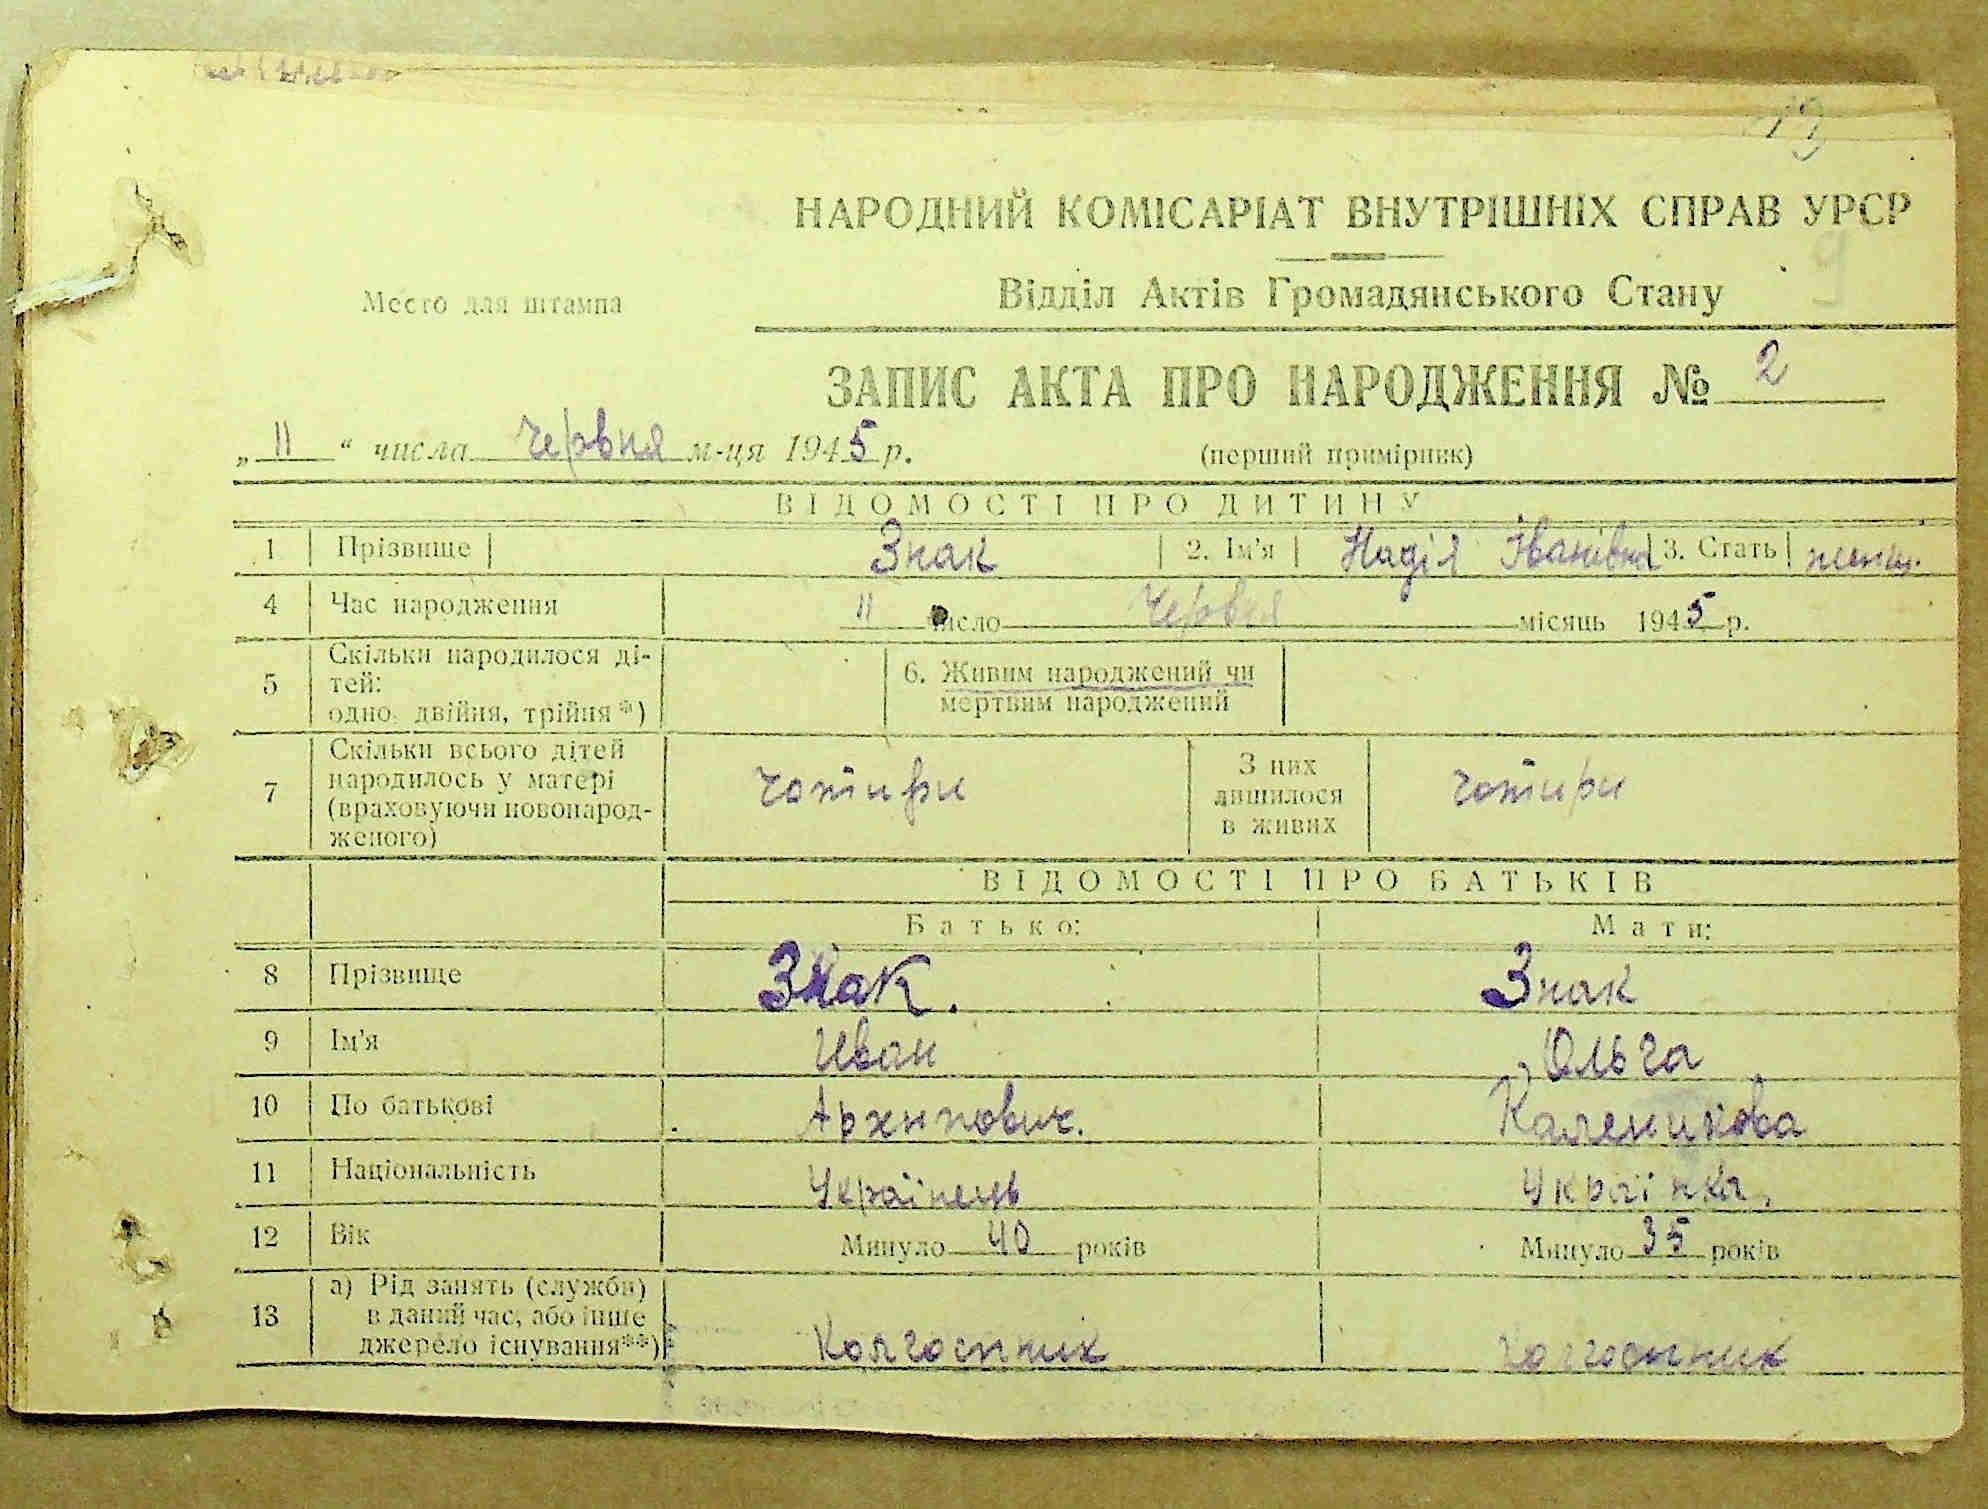 19
НАРОДНИЙ КОМІСАРІАТ ВНУТРІШНІХ СПРАВ УРСР
9
Место для штампа
Відділ Актів Громадянського Стану
ЗАПИС АКТА ПРО НАРОДЖЕННЯ № 2
„ 11 “ числа червня м-ця 1945 р.
(перший примірник)
ВІДОМОСТІ ПРО ДИТИНУ
1 Прізвище Знак 2. Ім'я Надія Іванівна 3. Стать
4 Час народження 11 число червня місяць 1945 р.
5 Скільки народилося ді-
тей:
одно, двійня, трійня*)
6. Живим народжений чи
мертвим народжений
7 Скільки всього дітей
народилось у матері
(враховуючи новонарод-
женого)
чотири
З них
лишилося
в живих
чотири
ВІДОМОСТІ ПРО БАТЬКІВ
Батько: Мати:
8 Прізвище Знак. Знак
9 Ім'я Иван Ольга
10 По батькові Архипович.
11 Національність Українець Українка.
12 Вік Минуло 40 років Минуло 35 років
13 а) Рід занять (служби)
в даний час, або інше
джерело існування**)
Колгоспник Колгоспник